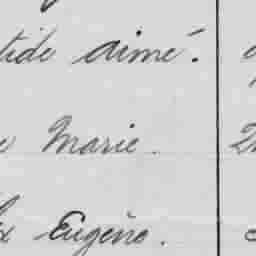 tide aimé.
Marie.
Eugène.